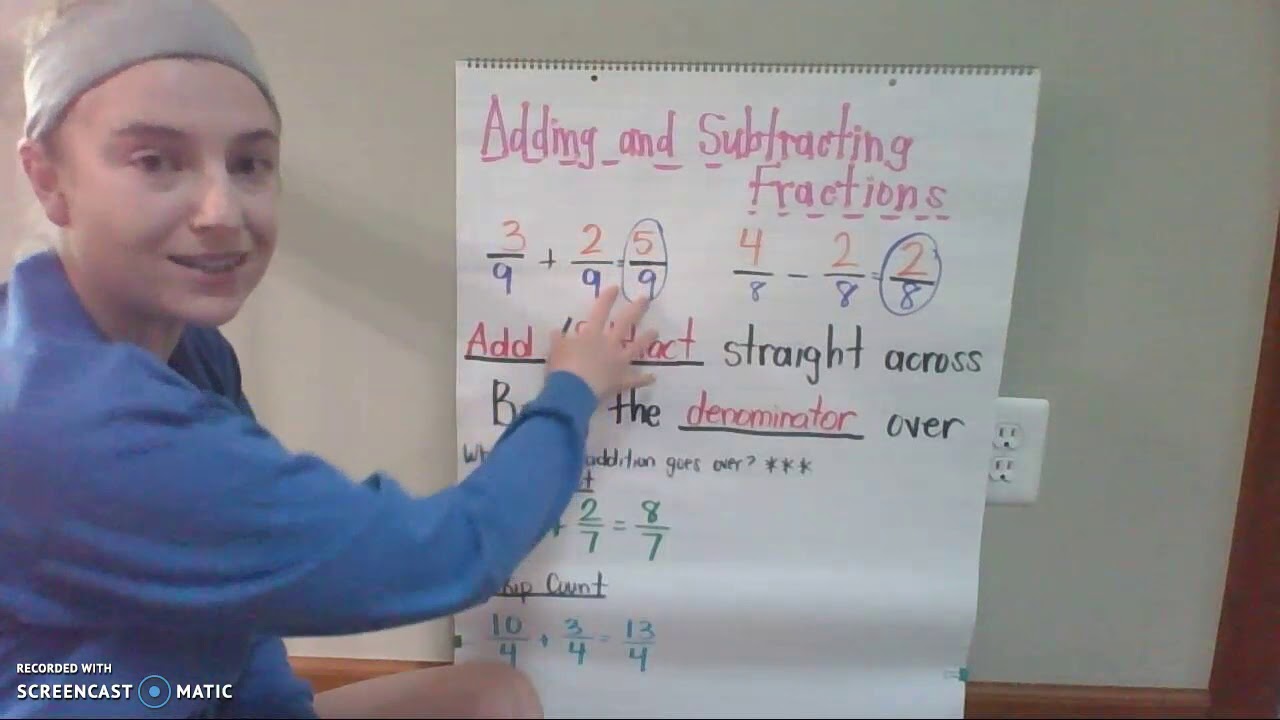 Adding and Subtracting
Fractions
3/9 + 2/9 = 5/9 4/8 - 2/8 = 2/8
Add / act straight across
the denominator over
addition goes over? ***
+ 2/7 = 8/7
Count
10/4 + 3/4 = 13/4
RECORDED WITH
SCREENCAST MATIC